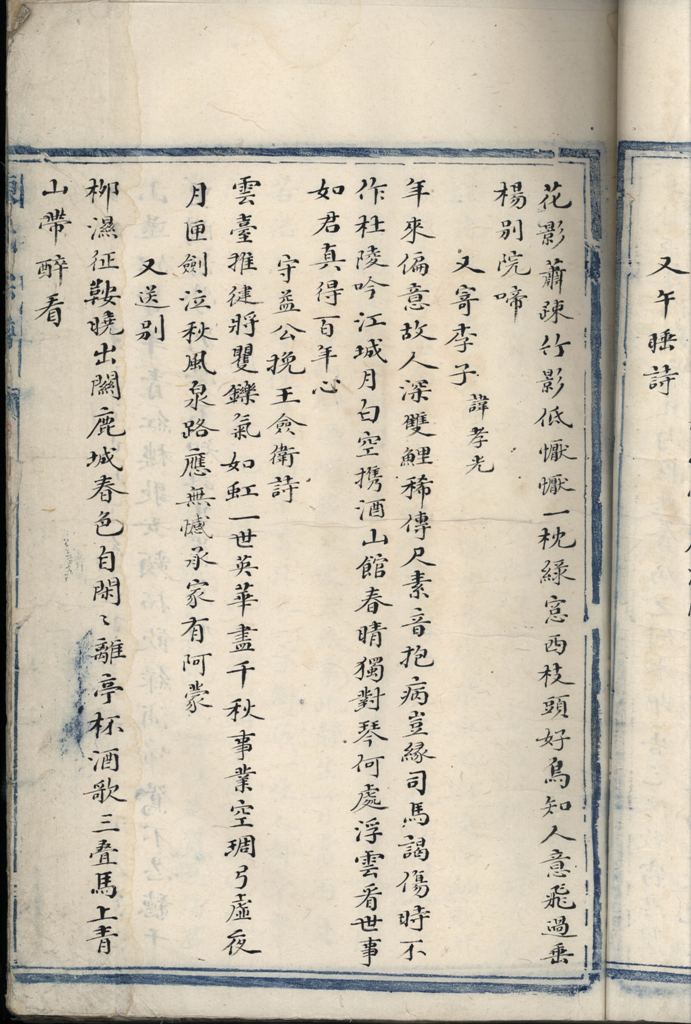 又午睡詩
花影蕭疎竹影低懨懨一枕緑窓西枝頭好鳥知人意飛過垂
楊别院啼
又寄李子 諱孝光
年來偏意故人深雙鯉稀傳尺素音抱病豈縁司馬謁傷時不
作杜陵吟江城月白空携酒山館春晴獨對琴何處浮雲看世事
如君真得百年心
守益公挽王僉衛詩
雲臺推徤將矍鑠氣如虹一世英華盡千秋事業空琱弓虚夜
月匣劍泣秋風泉路應無憾承家有阿蒙
又送别
栁濕征鞍曉出關鹿城春色自閑〻離亭杯酒歌三疊馬上青
山帶醉看